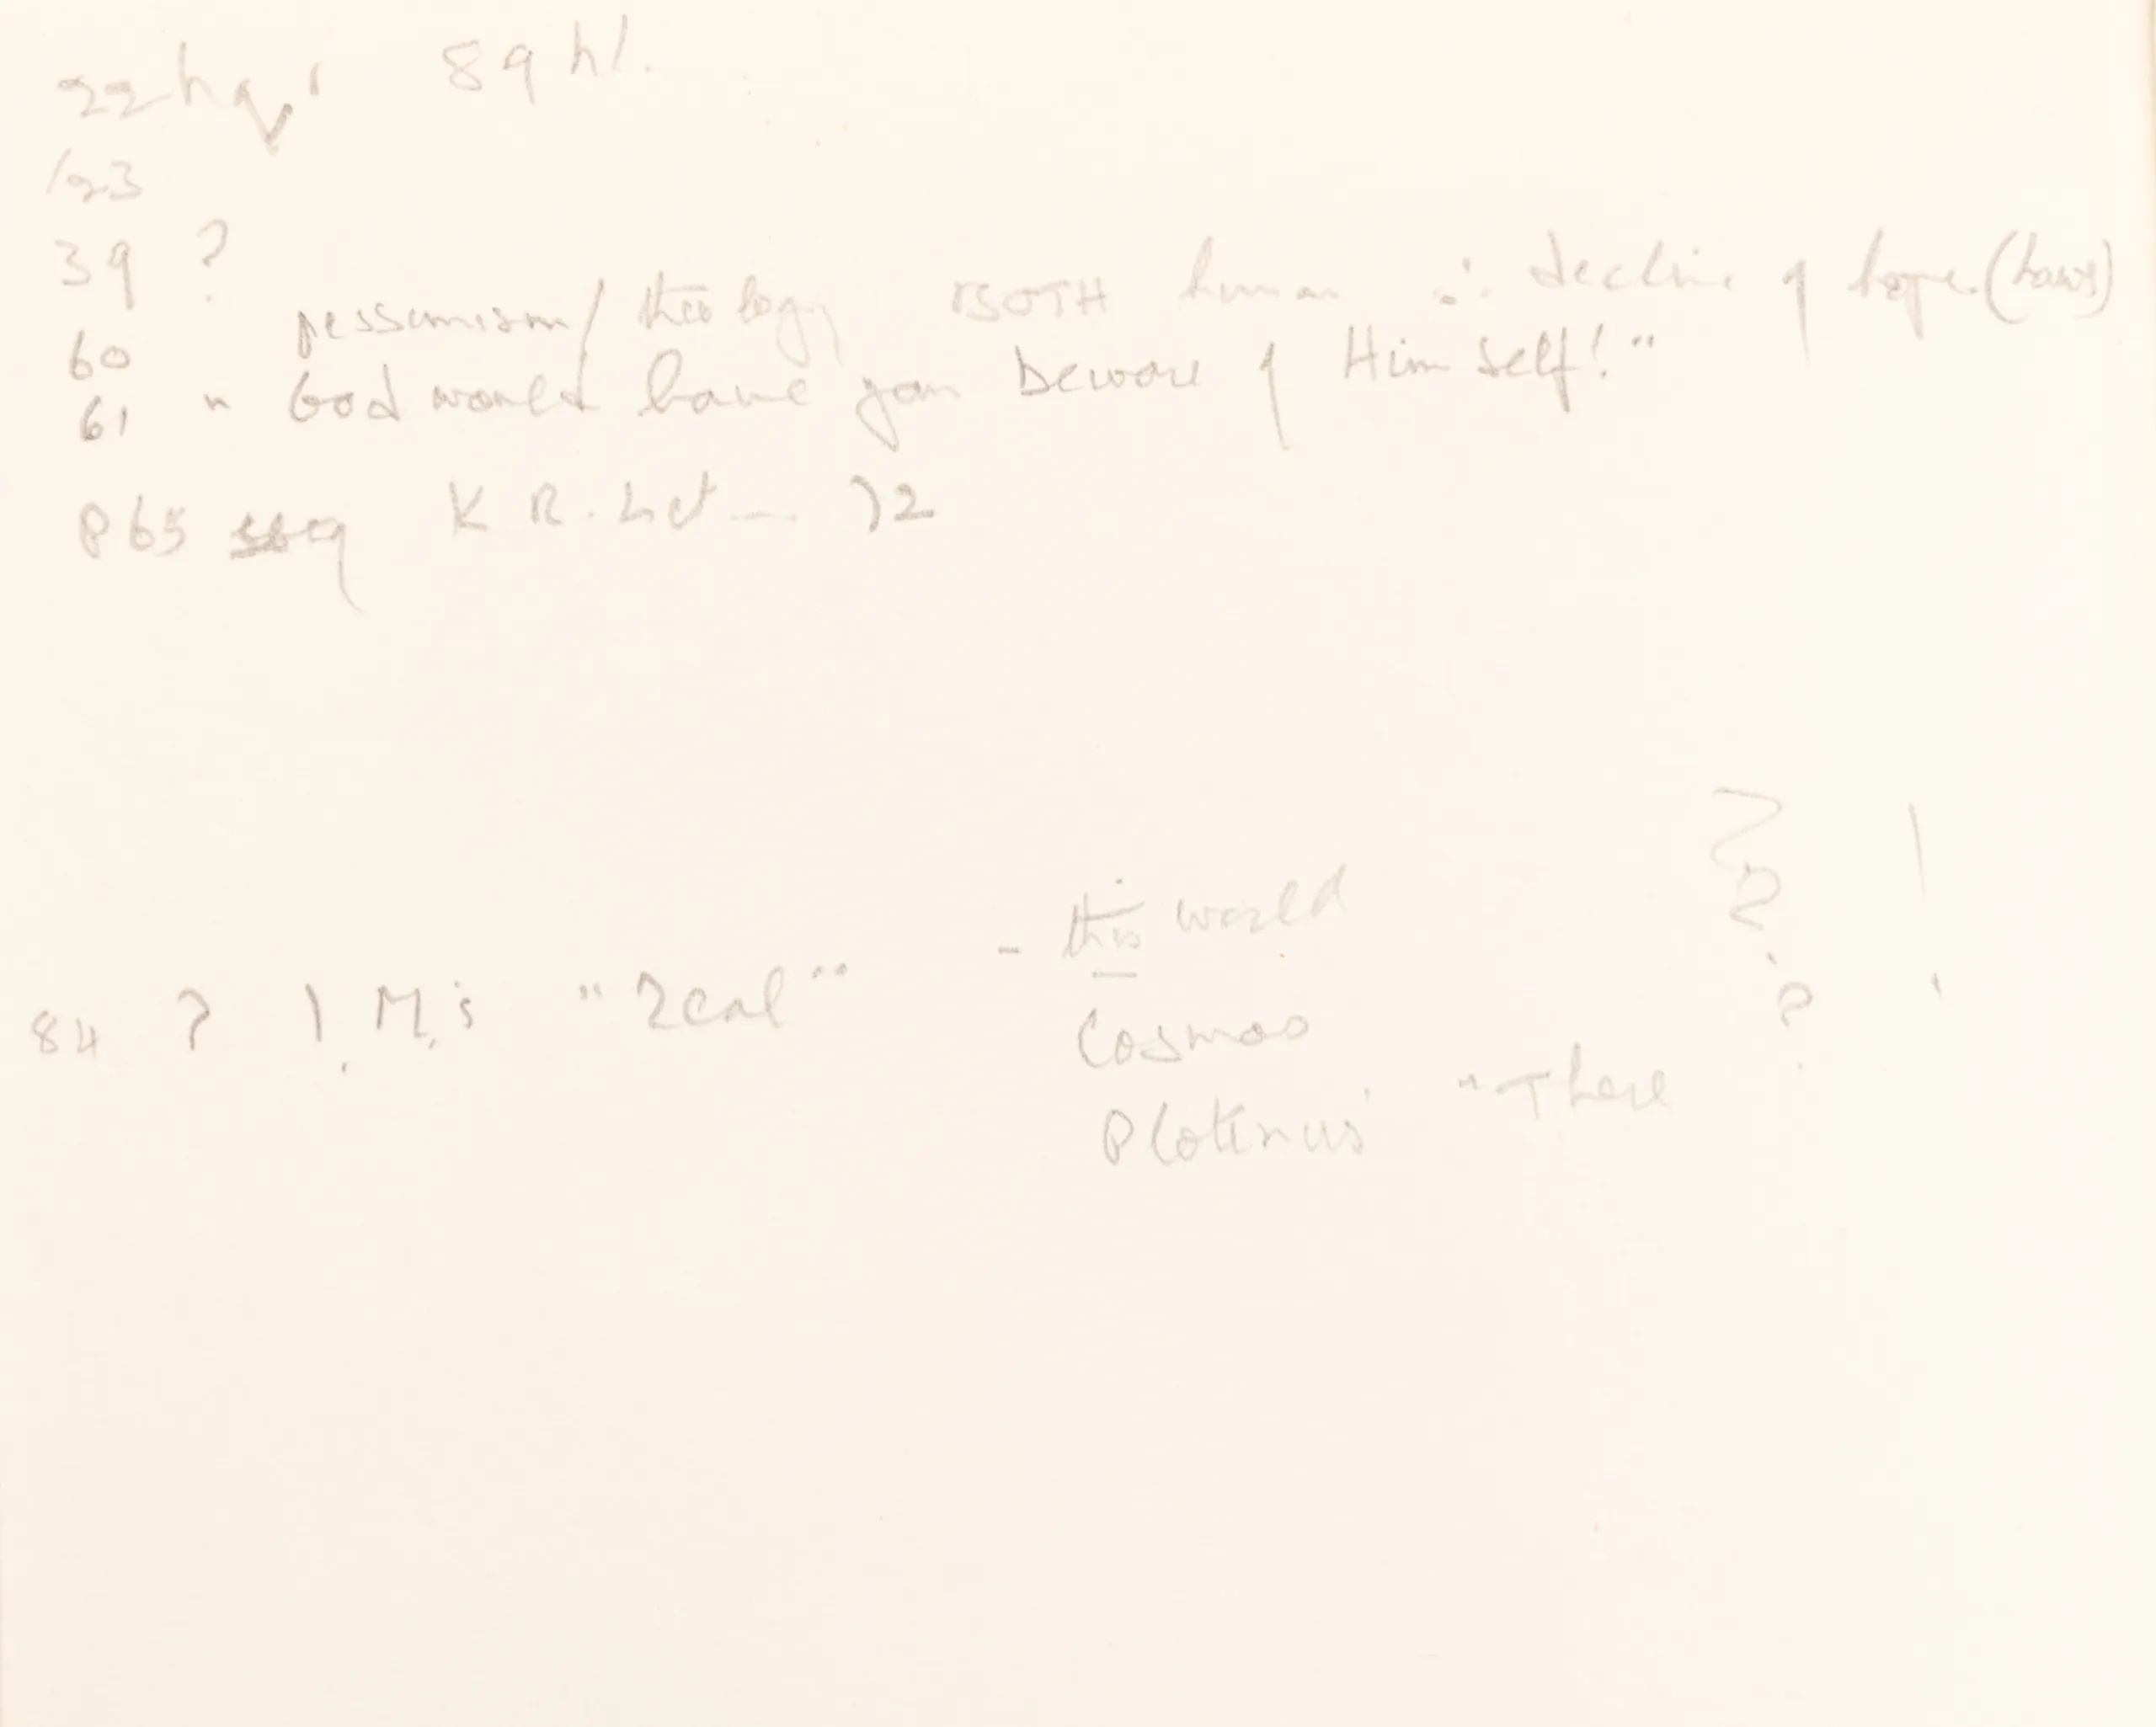 22 89
/23
39 ?
60 pessimism / theology BOTH human ∴ decline of hope (hours)
61 " God would have you beware of Himself! "
P 65 seq K R. Let — 72
- this world
84 ? I. M.'s "Real" Cosmos ?
Plotinus' "There